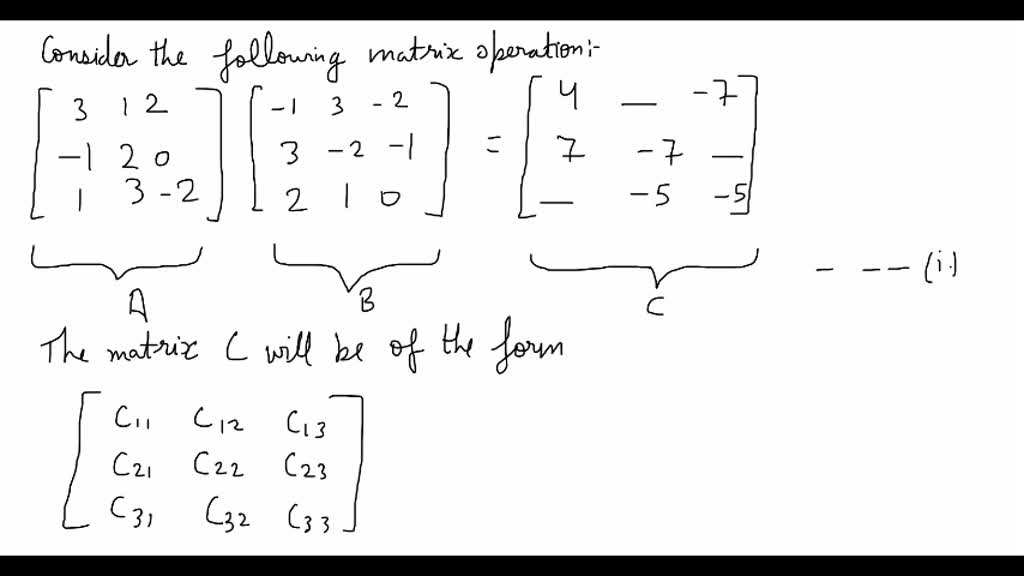 Consider the following matrix operation:-
[ 3 1 2 ] [ -1 3 -2 ] [ 4 _ -7 ]
[ -1 2 0 ] [ 3 -2 -1 ] = [ 7 -7 _ ]
[ 1 3 -2 ] [ 2 1 0 ] [ _ -5 -5 ]
A B C - -- (i.)
The matrix C will be of the form
[ C11 C12 C13 ]
[ C21 C22 C23 ]
[ C31 C32 C33 ]